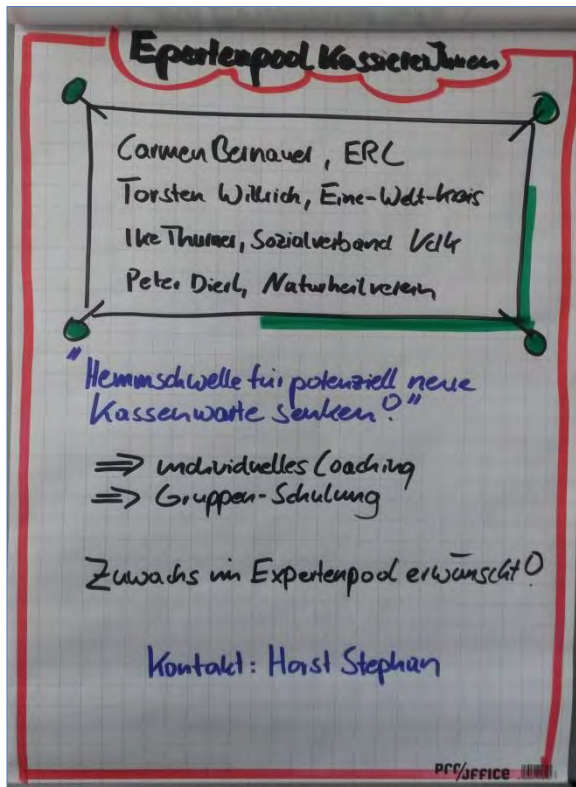 Epertenpool KassiererInnen
Carmen Bernauer, ERC
Torsten Willrich, Eine-Welt-Kreis
Ike Thurner, Sozialverband VdK
Peter Dierl, Naturheilverein
"Hemmschwelle für potenziell neue
Kassenwarte senken!"
⇒ individuelles Coaching
⇒ Gruppen-Schulung
Zuwachs im Expertenpool erwünscht!
Kontakt: Horst Stephan